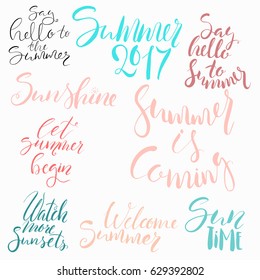 Say
hello to
the
Summer
Summer
2017
Say
hello
to
Summer
Sunshine
Let
Summer
begin
Summer
is
Coming
Watch
more
Sunsets
Welcome
Summer
Sun
TiME
629392802